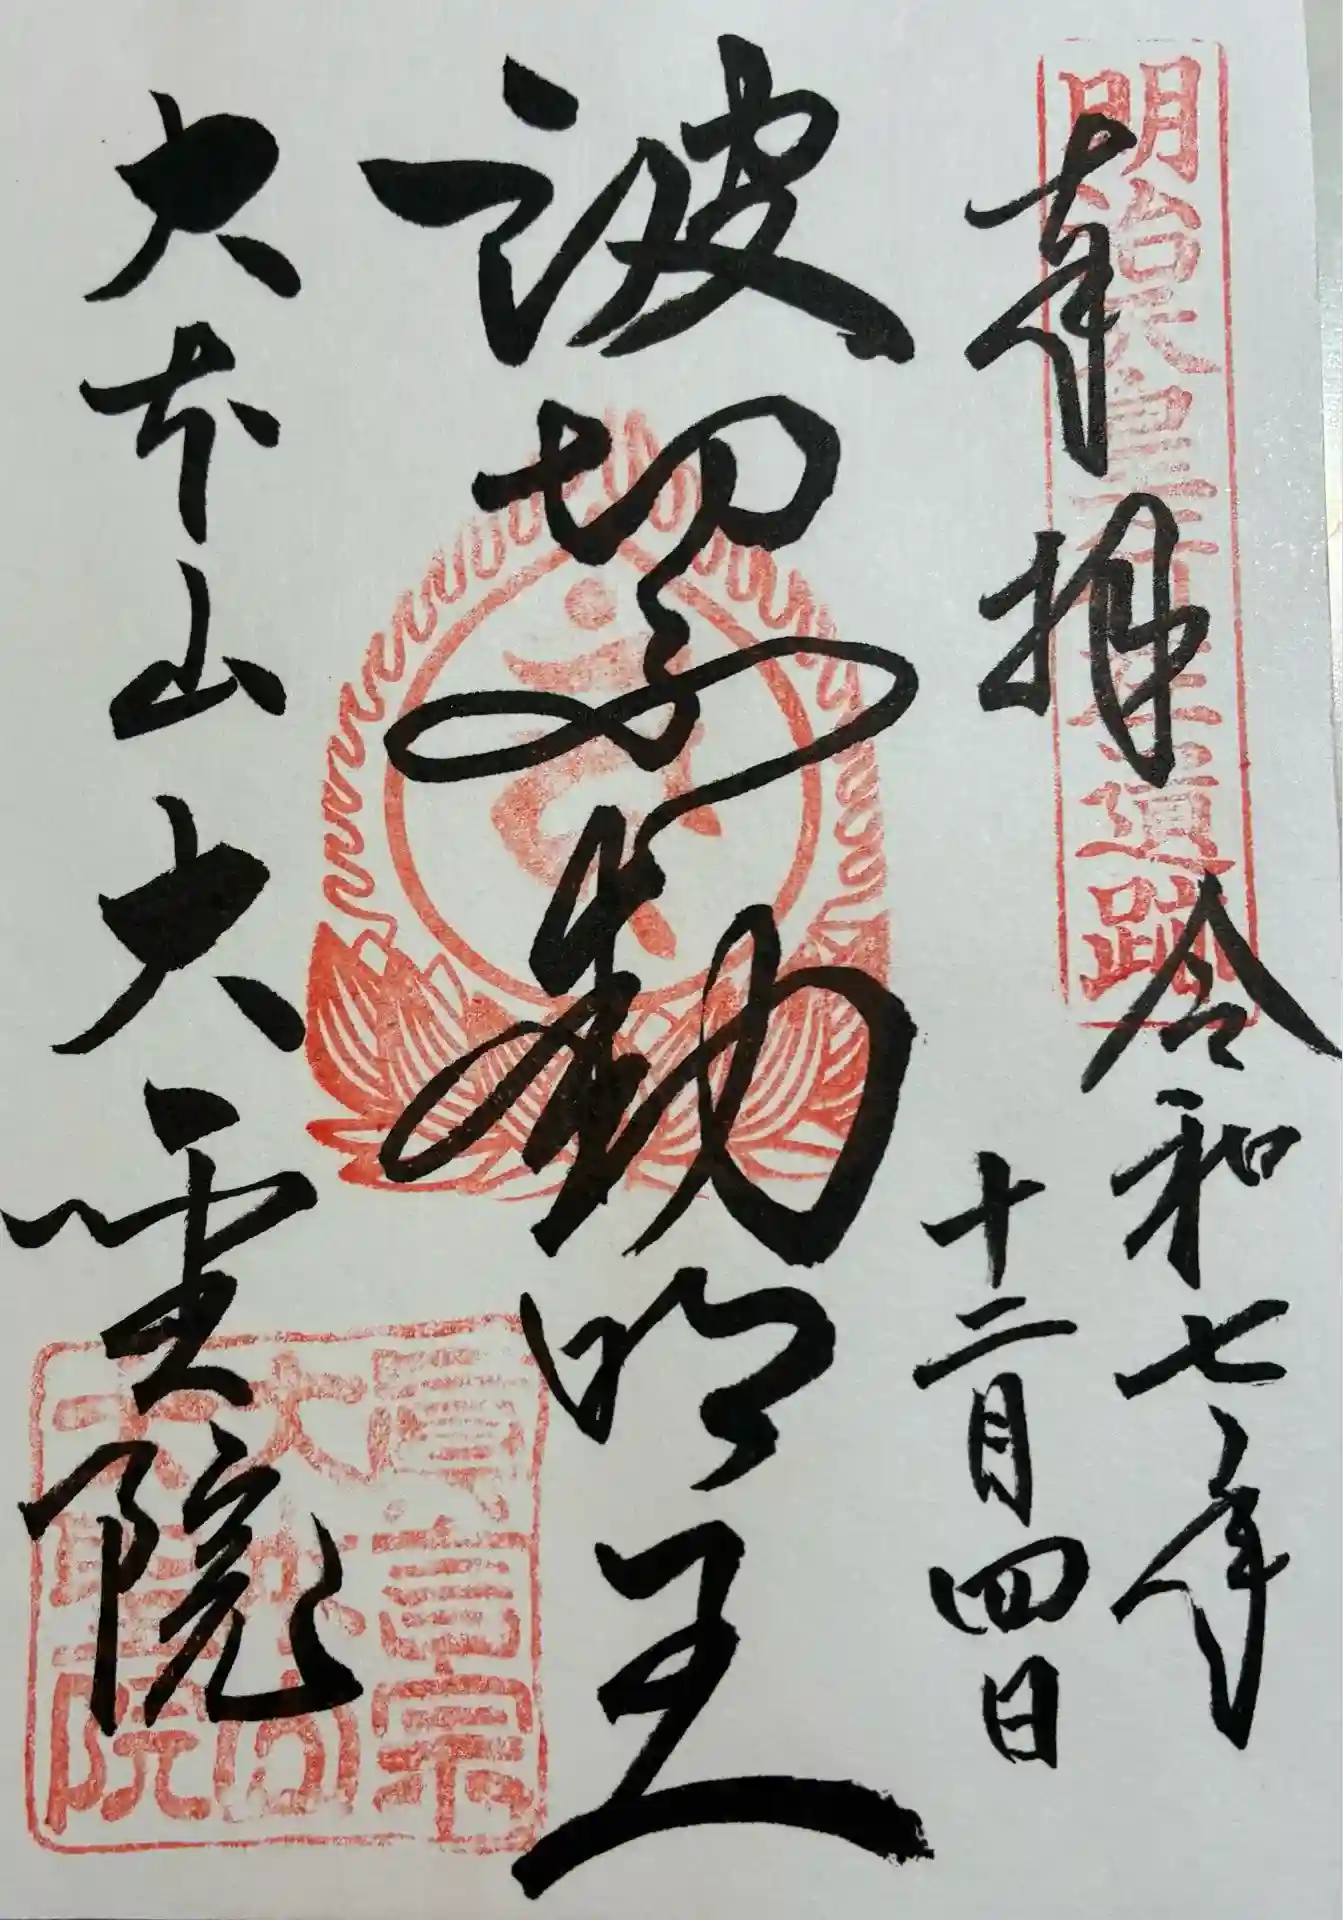 明治天皇
遺跡
奉拝
令和七年
十二月四日
波切不動明王
大本山大聖院
言宗
大本山
大聖院